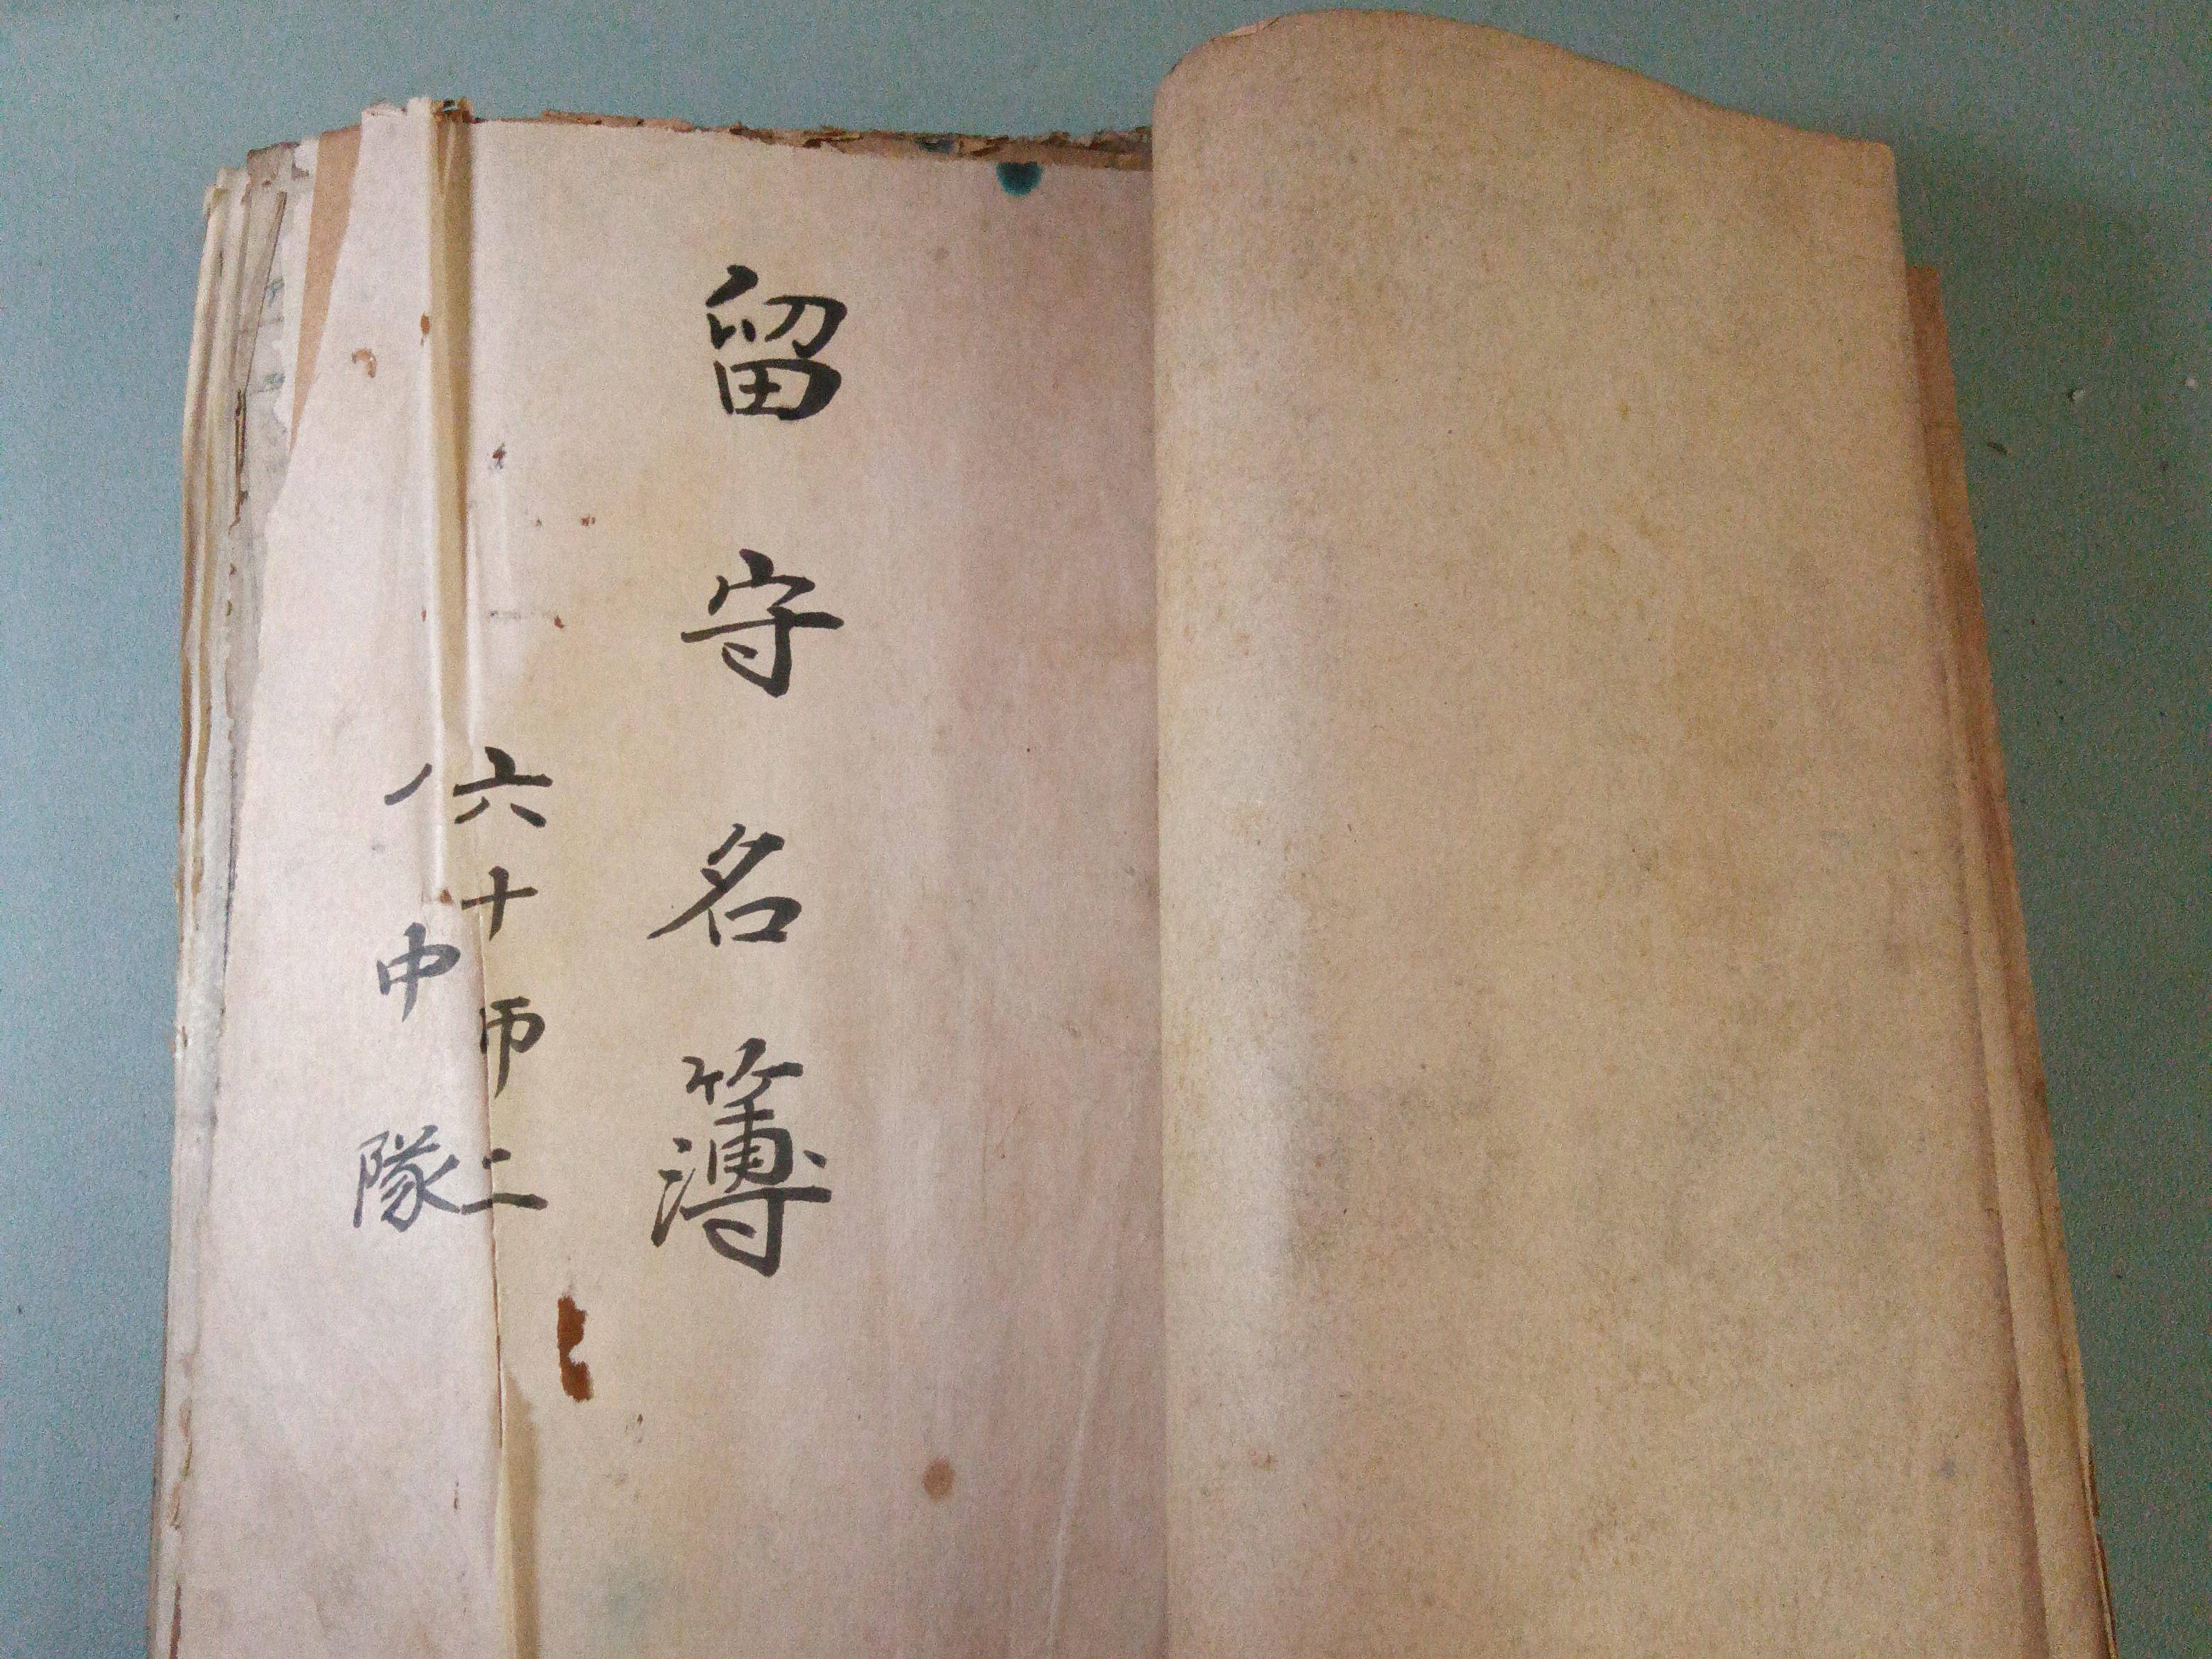 留守名簿
六十師二
中隊